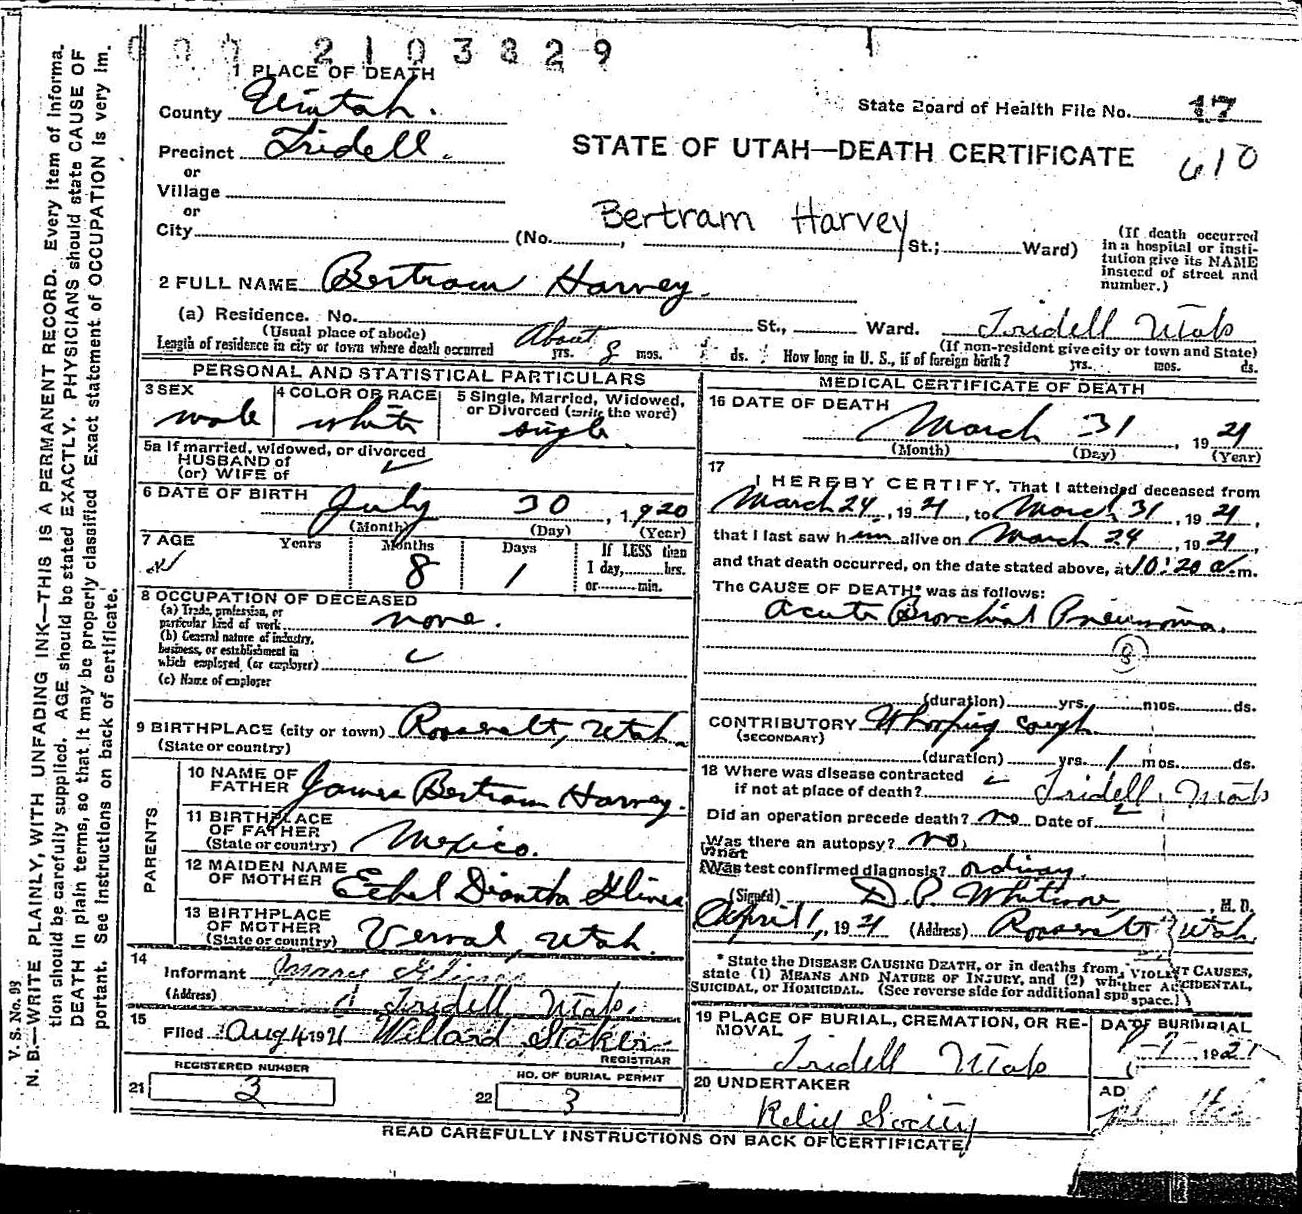 2103829
1 PLACE OF DEATH
County Uintah.
State Board of Health File No. 17
Precinct Tridell.
STATE OF UTAH—DEATH CERTIFICATE
610
or
Village
or
City (No. , St.; Ward)
Bertram Harvey
(If death occurred in a hospital or institution give its NAME instead of street and number.)
2 FULL NAME Bertram Harvey.
(a) Residence. No. St., Ward. Tridell Utah
(Usual place of abode) (If non-resident give city or town and State)
Length of residence in city or town where death occurred About yrs. 8 mos. ds. How long in U. S., if of foreign birth? yrs. mos. ds.
PERSONAL AND STATISTICAL PARTICULARS
3 SEX male
4 COLOR OR RACE white
5 Single, Married, Widowed, or Divorced (write the word) single
5a If married, widowed, or divorced
HUSBAND of
(or) WIFE of
6 DATE OF BIRTH July 30, 1920
(Month) (Day) (Year)
7 AGE Years Months 8 Days 1 If LESS than 1 day, hrs. or min.
8 OCCUPATION OF DECEASED
(a) Trade, profession, or particular kind of work none.
(b) General nature of industry, business, or establishment in which employed (or employer)
(c) Name of employer
9 BIRTHPLACE (city or town) Roosevelt, Utah
(State or country)
PARENTS
10 NAME OF FATHER James Bertram Harvey.
11 BIRTHPLACE OF FATHER (State or country) Mexico.
12 MAIDEN NAME OF MOTHER Ethel Diantha Glines
13 BIRTHPLACE OF MOTHER (State or country) Vernal, Utah
14 Informant Glines
(Address) Tridell Utah.
15 Filed Aug 4 1921 Willard Staker
REGISTRAR
REGISTERED NUMBER
21 3
NO. OF BURIAL PERMIT
22 3
MEDICAL CERTIFICATE OF DEATH
16 DATE OF DEATH March 31, 1921
(Month) (Day) (Year)
17 I HEREBY CERTIFY, That I attended deceased from
March 24, 1921, to March 31, 1921,
that I last saw him alive on March 24, 1921,
and that death occurred, on the date stated above, at 10:20 a.m.
The CAUSE OF DEATH* was as follows:
Acute Bronchial Pneumonia.
8
(duration) yrs. mos. ds.
CONTRIBUTORY Whooping cough
(SECONDARY)
(duration) yrs. 1 mos. ds.
18 Where was disease contracted
if not at place of death? Tridell, Utah
Did an operation precede death? no Date of
Was there an autopsy? no.
What test confirmed diagnosis? ordinary.
(Signed) D. P. Whitmore, M. D.
April 1, 1921 (Address) Roosevelt Utah
* State the DISEASE CAUSING DEATH, or in deaths from VIOLENT CAUSES, state (1) MEANS AND NATURE OF INJURY, and (2) whether ACCIDENTAL, SUICIDAL, or HOMICIDAL. (See reverse side for additional space.)
19 PLACE OF BURIAL, CREMATION, OR REMOVAL Tridell Utah
DATE BURIAL 1921
20 UNDERTAKER Relief Society
AD
READ CAREFULLY INSTRUCTIONS ON BACK OF CERTIFICATE
V. S. No. 98
N. B.—WRITE PLAINLY, WITH UNFADING INK—THIS IS A PERMANENT RECORD. Every item of information should be carefully supplied. AGE should be stated EXACTLY. PHYSICIANS should state CAUSE OF DEATH in plain terms, so that it may be properly classified. Exact statement of OCCUPATION is very important. See instructions on back of certificate.